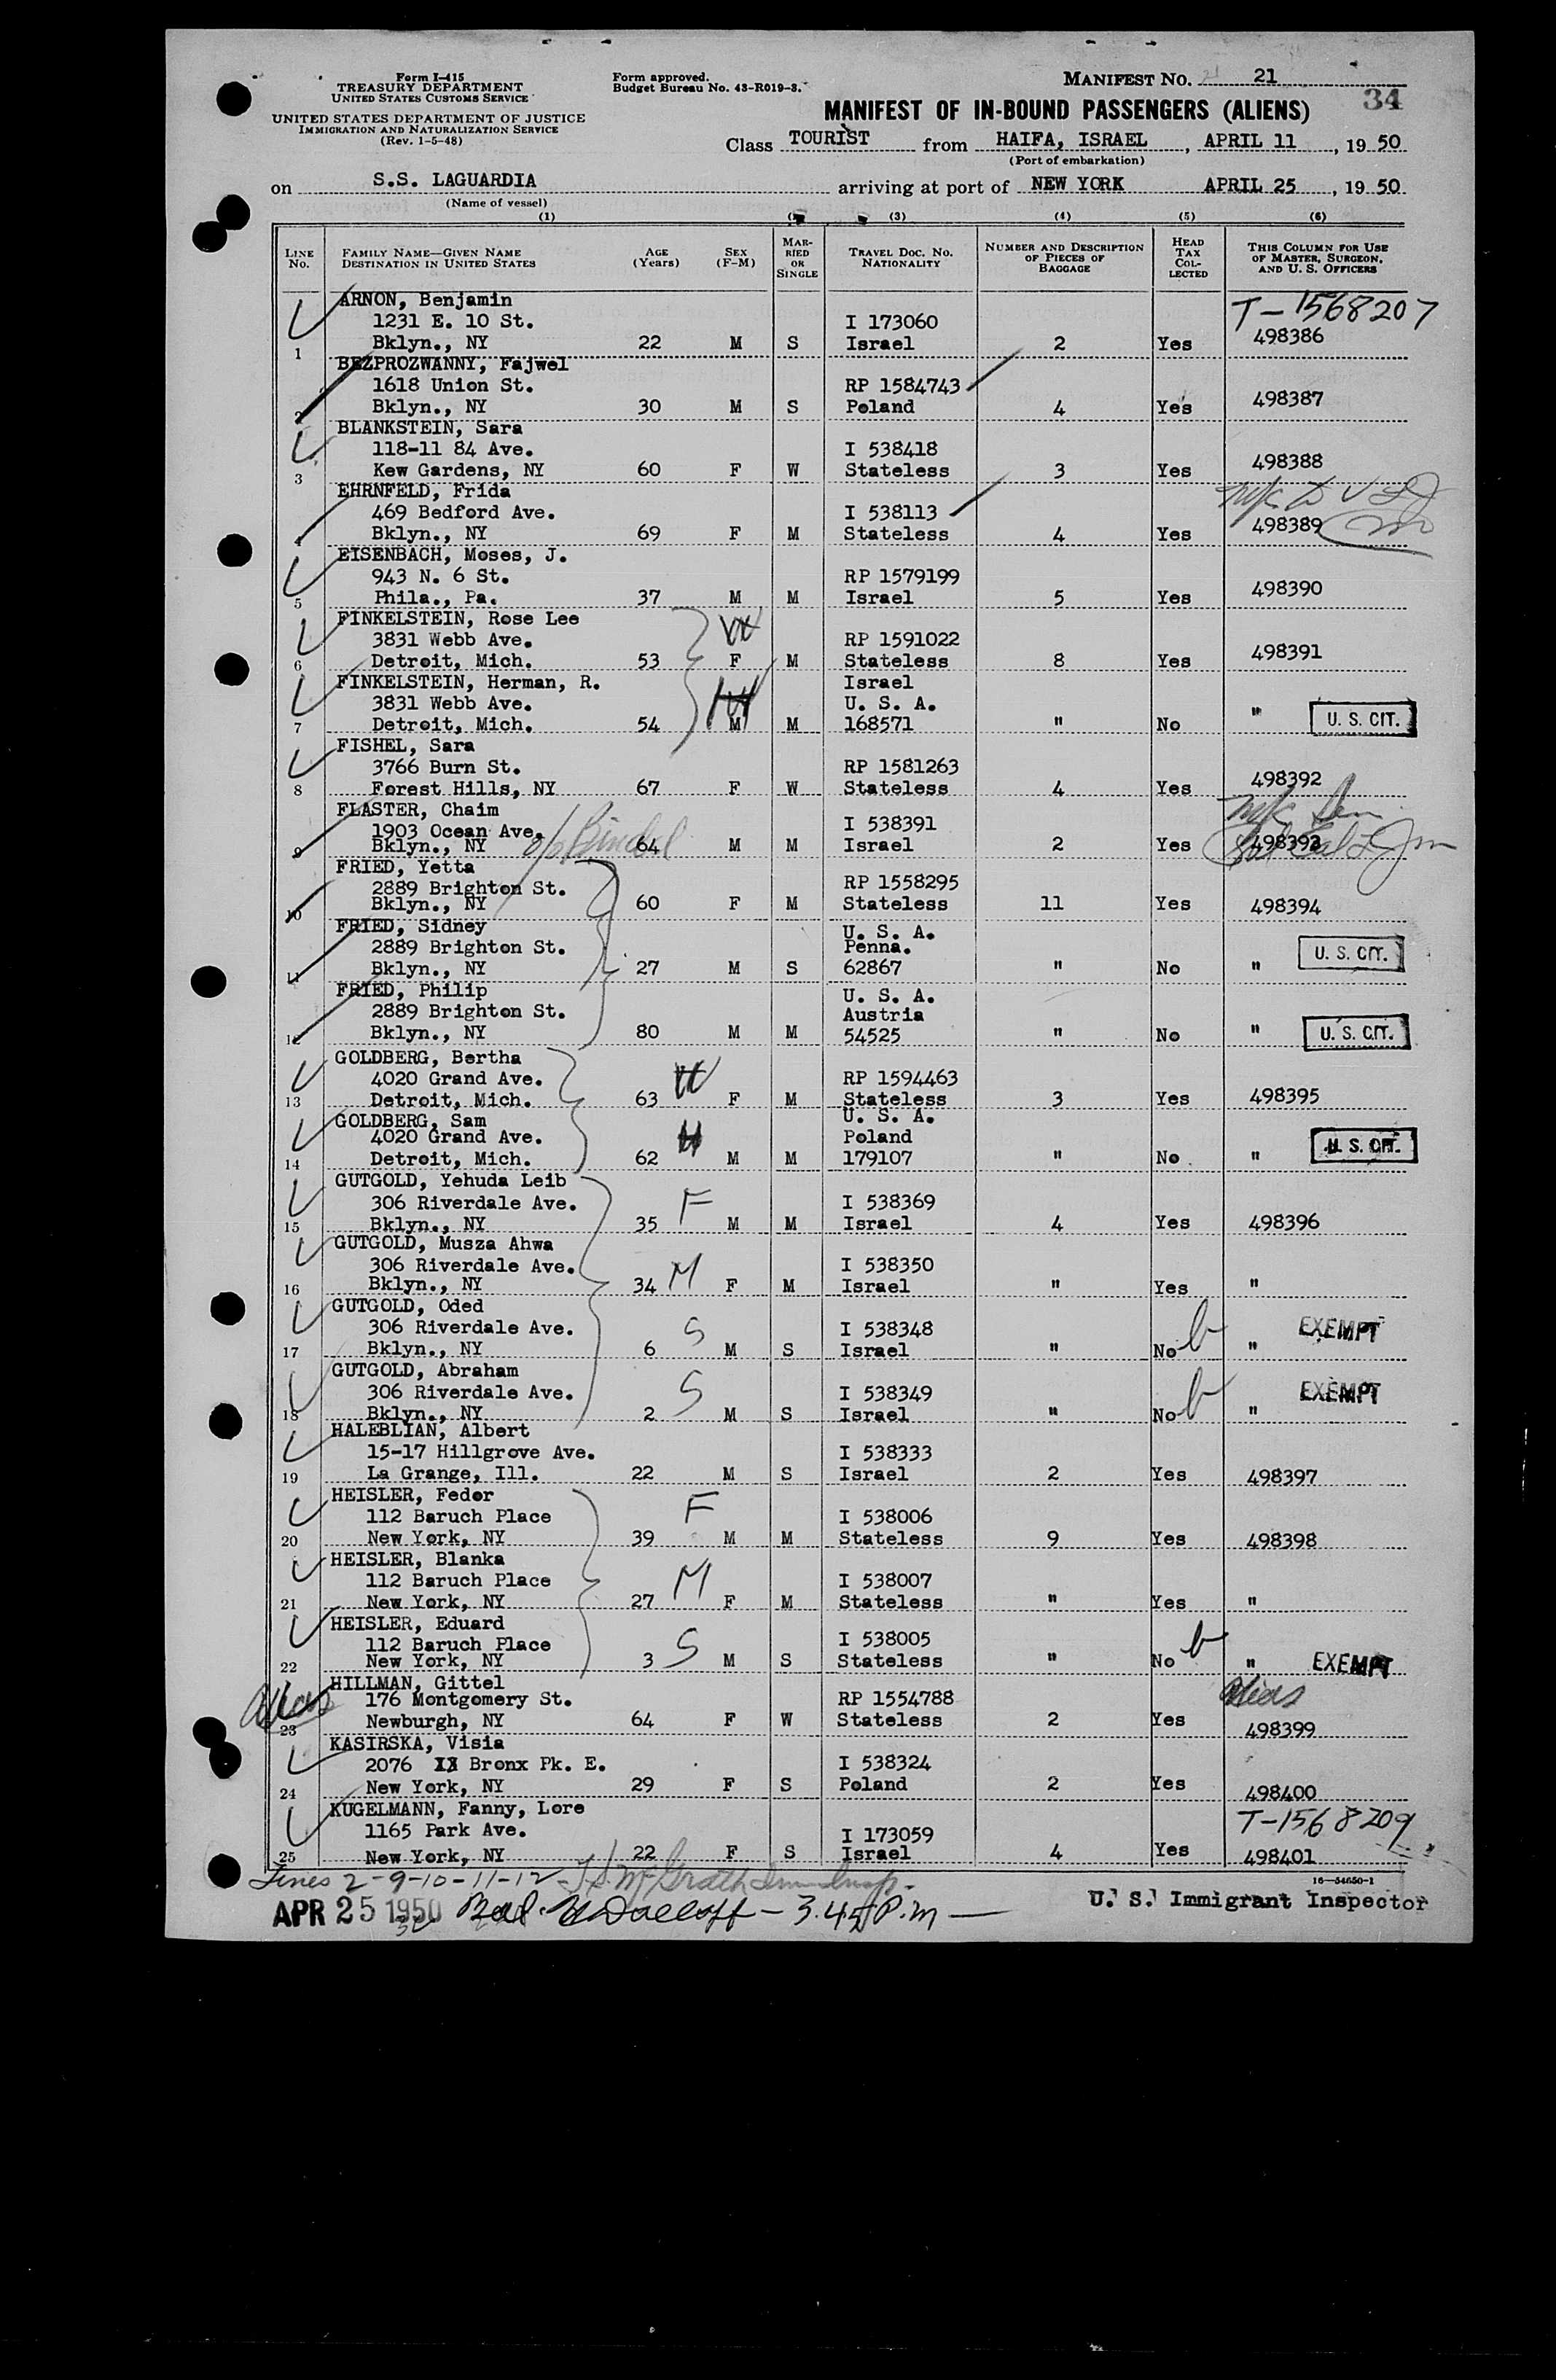 Form I-415
TREASURY DEPARTMENT
UNITED STATES CUSTOMS SERVICE
UNITED STATES DEPARTMENT OF JUSTICE
IMMIGRATION AND NATURALIZATION SERVICE
(Rev. 1-5-48)
Form approved.
Budget Bureau No. 43-R019-3.
MANIFEST NO. 21
34
MANIFEST OF IN-BOUND PASSENGERS (ALIENS)
Class TOURIST from HAIFA, ISRAEL, APRIL 11, 19 50
(Port of embarkation)
on S.S. LAGUARDIA arriving at port of NEW YORK APRIL 25, 19 50
(Name of vessel)
(1) (3) (4) (5) (6)
LINE No. FAMILY NAME—GIVEN NAME DESTINATION IN UNITED STATES AGE (Years) SEX (F-M) MARRIED OR SINGLE TRAVEL DOC. NO. NATIONALITY NUMBER AND DESCRIPTION OF PIECES OF BAGGAGE HEAD TAX COLLECTED THIS COLUMN FOR USE OF MASTER, SURGEON, AND U. S. OFFICERS
ARNON, Benjamin T-1568207
1231 E. 10 St. I 173060
1 Bklyn., NY 22 M S Israel 2 Yes 498386
BEZPROZWANNY, Fajwel
1618 Union St. RP 1584743
2 Bklyn., NY 30 M S Poland 4 Yes 498387
BLANKSTEIN, Sara
118-11 84 Ave. I 538418
3 Kew Gardens, NY 60 F W Stateless 3 Yes 498388
EHRNFELD, Frida
469 Bedford Ave. I 538113
4 Bklyn., NY 69 F M Stateless 4 Yes 498389
EISENBACH, Moses, J.
943 N. 6 St. RP 1579199
5 Phila., Pa. 37 M M Israel 5 Yes 498390
FINKELSTEIN, Rose Lee W
3831 Webb Ave. RP 1591022
6 Detroit, Mich. 53 F M Stateless 8 Yes 498391
FINKELSTEIN, Herman, R. H Israel
3831 Webb Ave. U. S. A.
7 Detroit, Mich. 54 M M 168571 " No " U. S. CIT.
FISHEL, Sara
3766 Burn St. RP 1581263
8 Forest Hills, NY 67 F W Stateless 4 Yes 498392
FLASTER, Chaim
1903 Ocean Ave. I 538391
9 Bklyn., NY 64 M M Israel 2 Yes 498393
FRIED, Yetta
2889 Brighton St. RP 1558295
10 Bklyn., NY 60 F M Stateless 11 Yes 498394
FRIED, Sidney U. S. A.
2889 Brighton St. Penna.
11 Bklyn., NY 27 M S 62867 " No " U. S. CIT.
FRIED, Philip U. S. A.
2889 Brighton St. Austria
12 Bklyn., NY 80 M M 54525 " No " U. S. CIT.
GOLDBERG, Bertha
4020 Grand Ave. W RP 1594463
13 Detroit, Mich. 63 F M Stateless 3 Yes 498395
GOLDBERG, Sam U. S. A.
4020 Grand Ave. H Poland
14 Detroit, Mich. 62 M M 179107 " No " U. S. CIT.
GUTGOLD, Yehuda Leib
306 Riverdale Ave. F I 538369
15 Bklyn., NY 35 M M Israel 4 Yes 498396
GUTGOLD, Musza Ahwa
306 Riverdale Ave. M I 538350
16 Bklyn., NY 34 F M Israel " Yes "
GUTGOLD, Oded
306 Riverdale Ave. S I 538348 EXEMPT
17 Bklyn., NY 6 M S Israel " No "
GUTGOLD, Abraham
306 Riverdale Ave. S I 538349 EXEMPT
18 Bklyn., NY 2 M S Israel " No "
HALEBLIAN, Albert
15-17 Hillgrove Ave. I 538333
19 La Grange, Ill. 22 M S Israel 2 Yes 498397
HEISLER, Fedor F
112 Baruch Place I 538006
20 New York, NY 39 M M Stateless 9 Yes 498398
HEISLER, Blanka
112 Baruch Place M I 538007
21 New York, NY 27 F M Stateless " Yes "
HEISLER, Eduard
112 Baruch Place S I 538005
22 New York, NY 3 M S Stateless " No " EXEMPT
HILLMAN, Gittel alias
176 Montgomery St. RP 1554788
23 Newburgh, NY 64 F W Stateless 2 Yes 498399
KASIRSKA, Visia
2076 Bronx Pk. E. I 538324
24 New York, NY 29 F S Poland 2 Yes 498400
KUGELMANN, Fanny, Lore T-1568209
1165 Park Ave. I 173059
25 New York, NY 22 F S Israel 4 Yes 498401
Lines 2-9-10-11-12
16—54650-1
APR 25 1950 3.45 P.m
U. S. Immigrant Inspector